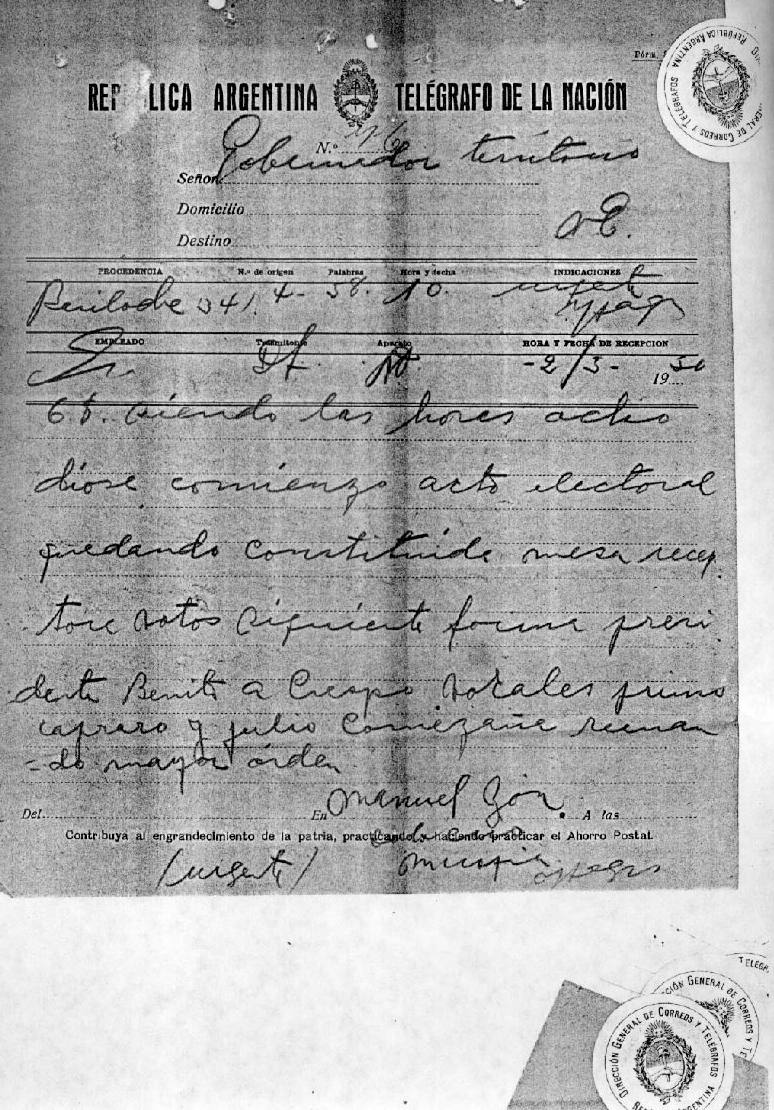 Fórm.
REP LICA ARGENTINA TELÉGRAFO DE LA NACIÓN
N.º
Señor Gobernador territorio
Domicilio
Destino
PROCEDENCIA N.º de origen Palabras Hora y fecha INDICACIONES
Bariloche 341 4- 58. 10. urgente
EMPLEADO Trasmitente Aparato HORA Y FECHA DE RECEPCION
-2/3- 1930
siendo las horas ocho
diose comienzo acto electoral
quedando constituida mesa recep
tora votos siguiente forma presi
dente Benito a Crespo vocales primo
capraro y julio Comezaña reinan
-do mayor órden
Del En Manuel A las
Contribuya al engrandecimiento de la patria, practicando y haciendo practicar el Ahorro Postal.
(urgente)
DIRECCIÓN GENERAL DE CORREOS Y TELÉGRAFOS
REPÚBLICA ARGENTINA
DIRECCIÓN GENERAL DE CORREOS Y TELÉGRAFOS